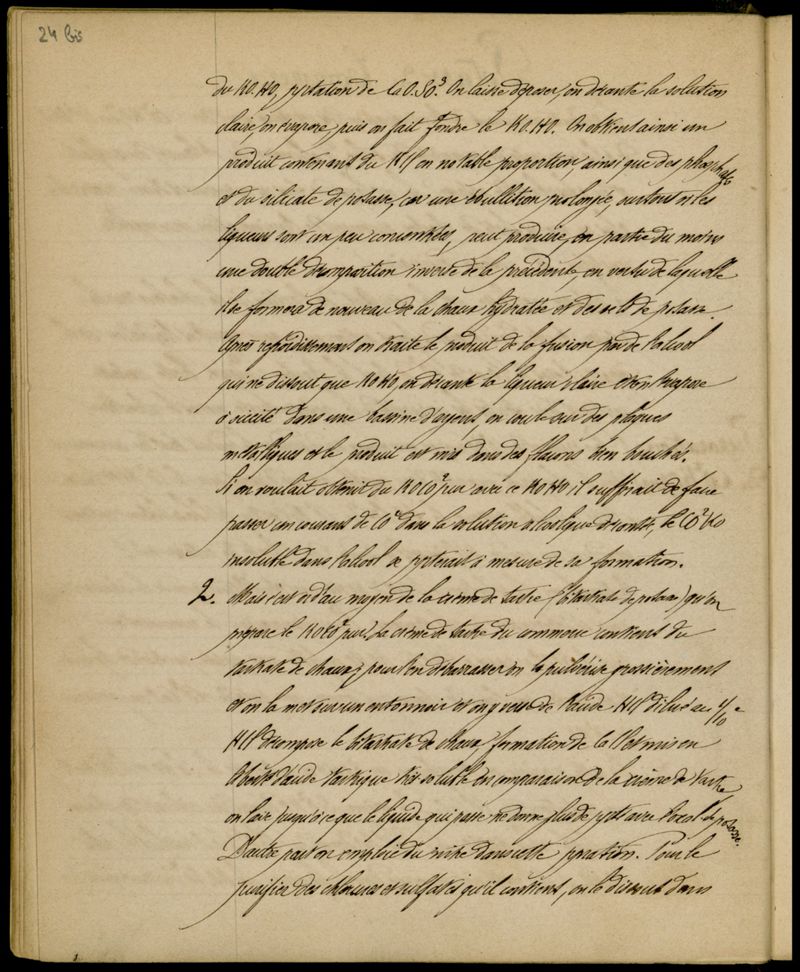 24 bis
du KO.HO, pptation de CaO.SO³. On laisse déposer, on décante la solution
claire, on évapore, puis on fait fondre le KO.HO. On obtient ainsi un
produit contenant du KCl en notable proportion, ainsi que des phosphate
et du silicate de potasse, car une ébullition prolongée, surtout si les
liqueurs sont un peu concentrées, peut produire, en partie du moins
une double décomposition inverse de la précédente, en vertu de laquelle
il se formera de nouveau de la chaux hydratée et des sels de potasse.
Après refroidissement on traite le produit de la fusion par de l'alcool
qui ne dissout que KOHO, on décante la liqueur claire et on l'évapore
à siccité dans une bassine d'argent, on coule sur des plaques
métalliques et le produit est mis dans des flacons bien bouchés.
Si on voulait obtenir du KOCO² pur avec ce KOHO il suffirait de faire
passer un courant de CO² dans la solution alcoolique décantée, le CO²KO
insoluble dans l'alcool se ppterait à mesure de sa formation.
2. Mais c'est au moyen de la crème de tartre (bitartrate de potasse) qu'on
prépare le KOCO² pur. La crème de tartre du commerce contient du
tartrate de chaux; pour l'en débarrasser on la pulvérise grossièrement
et on la met sur un entonnoir et on y verse de l'acide HCl dilué au 1/10e
HCl décompose le bitartrate de chaux, formation de CaCl et mis en
liberté d'acide tartrique très soluble en comparaison de la crème de tartre
on lave jusqu'à ce que le liquide qui passe ne donne plus de ppté avec l'oxal. de potasse.
D'autre part on emploie du nitre dans cette pparation. Pour le
purifier des chlorures et sulfates qu'il contient, on le dissout dans